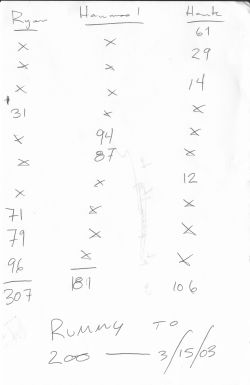 Ryan Hammool Hank
x x 61
x x 29
x x 14
31 x x
x 94 x
x 87 x
x x 12
71 x x
79 x x
96 x x
307 181 106
RUMMY TO
200 — 3/15/03